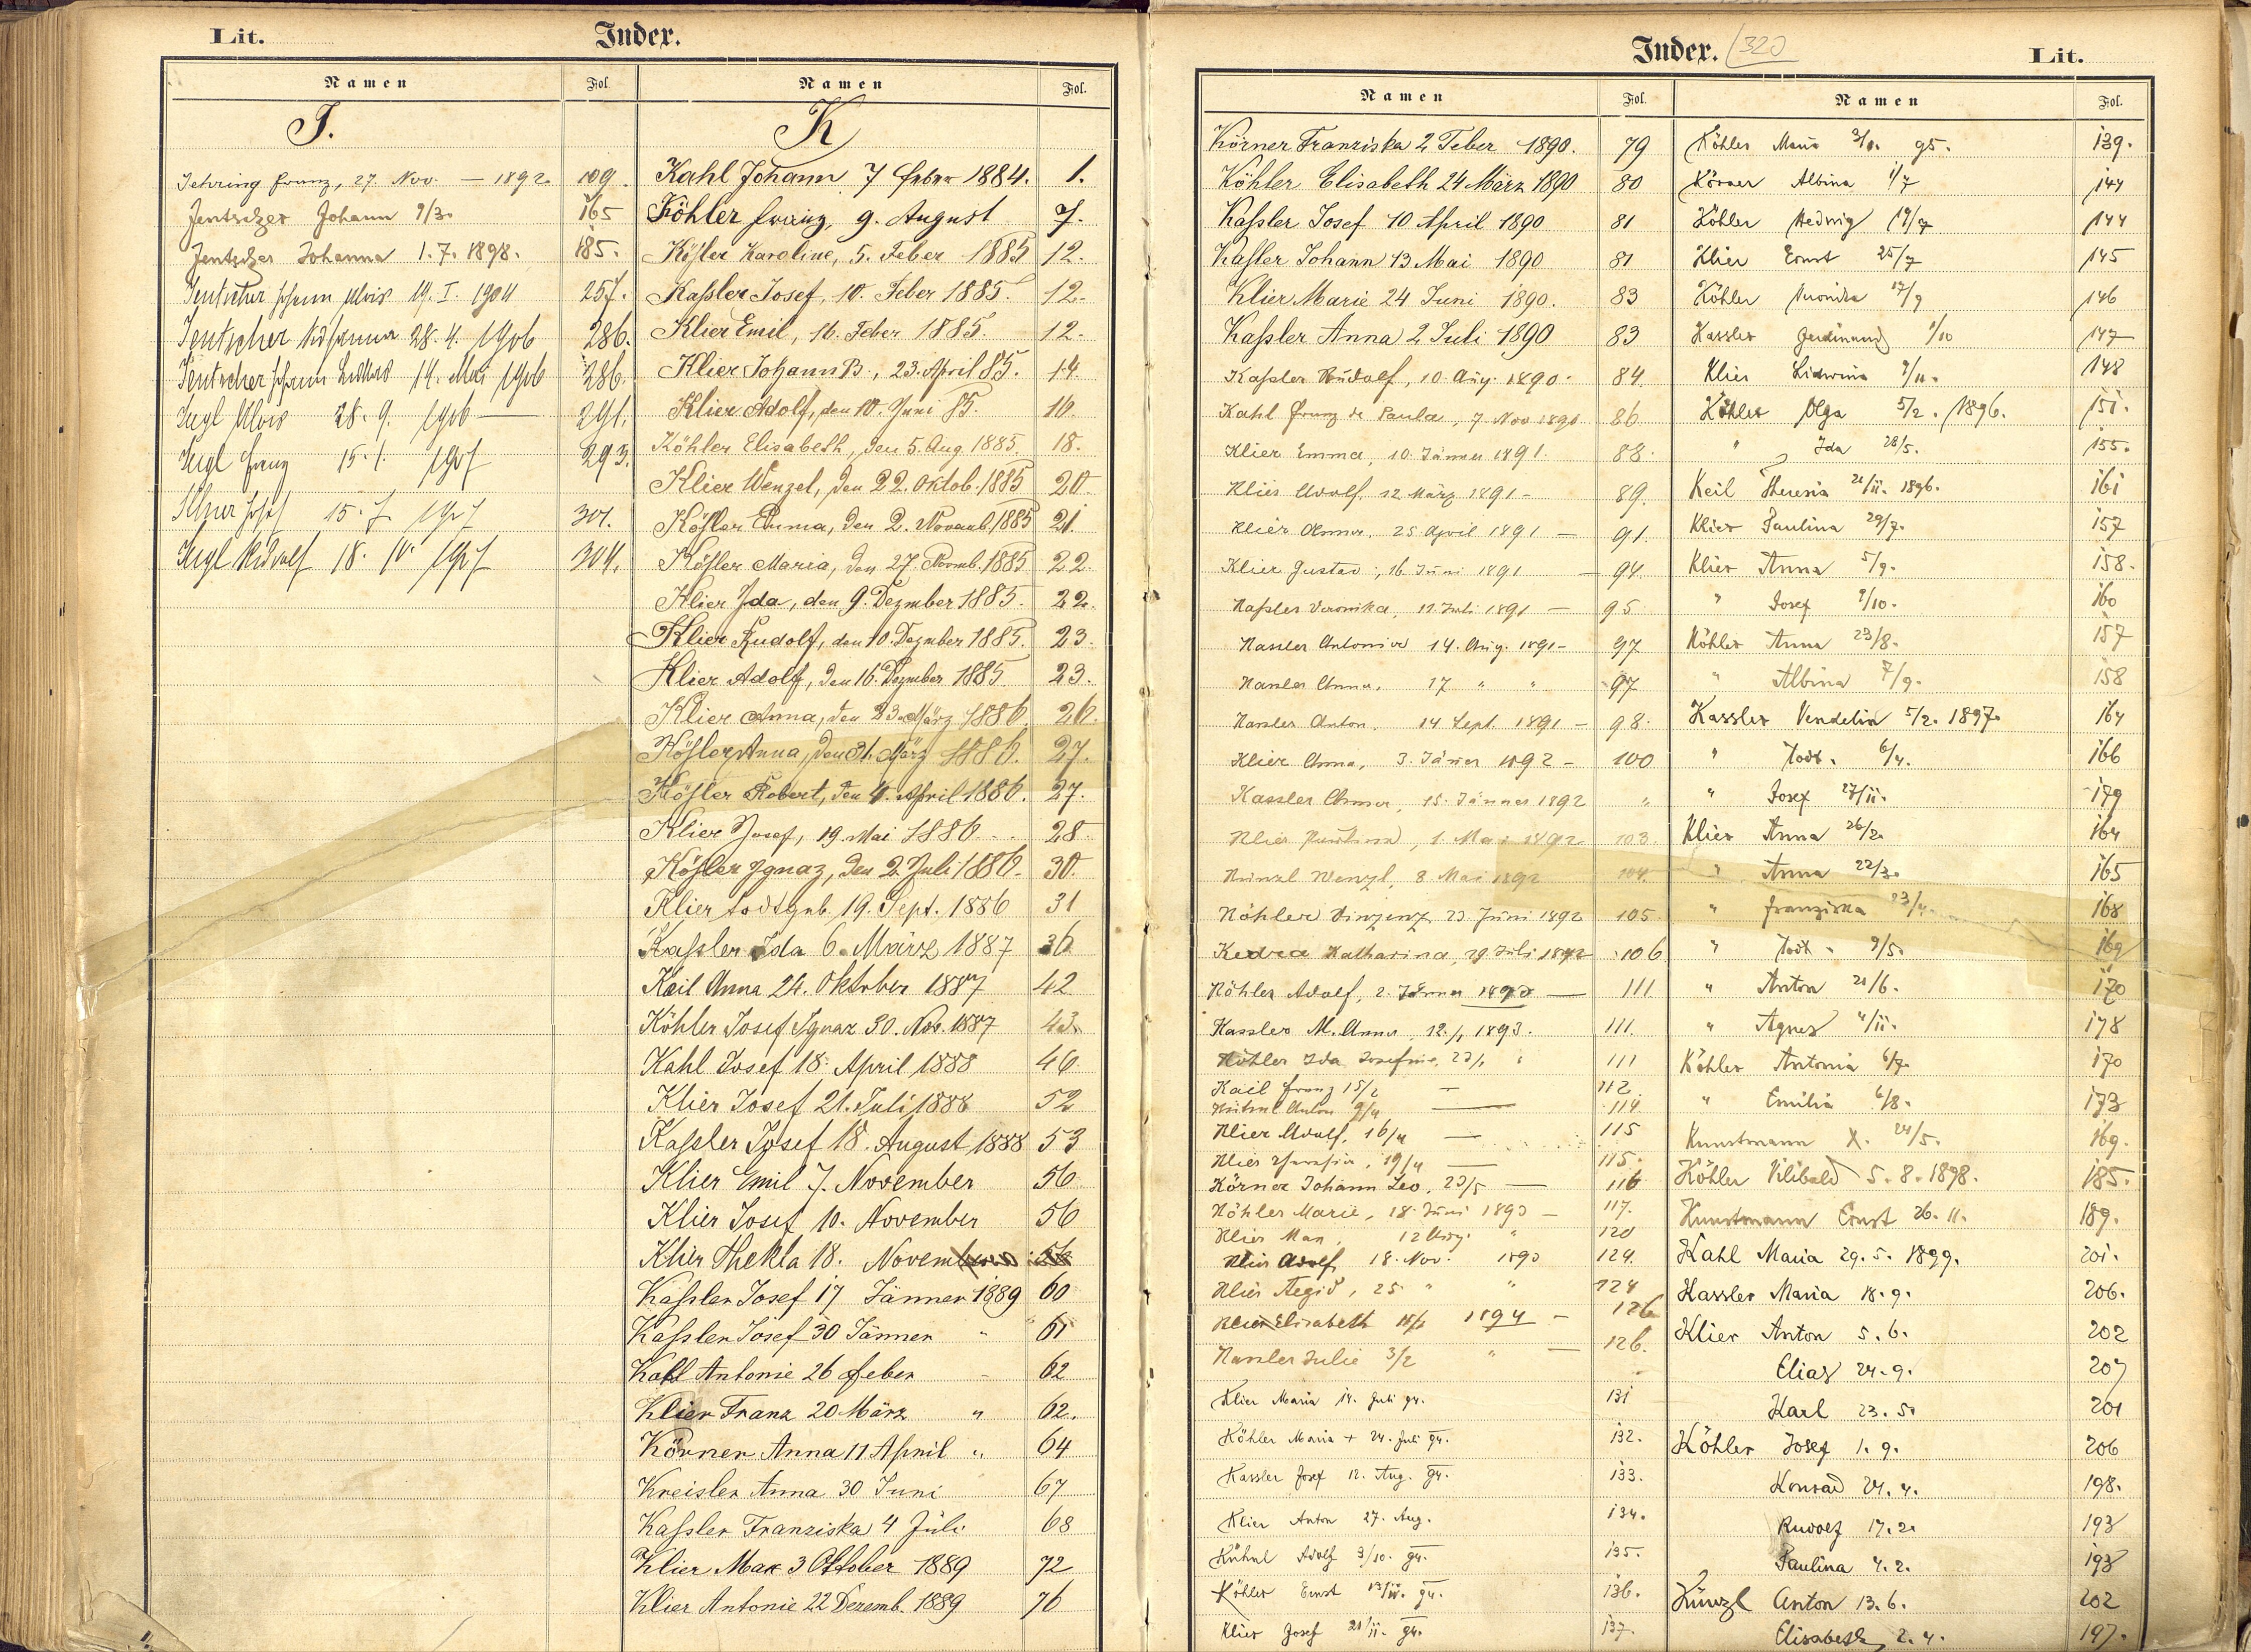 Lit.
Index.
Namen
Fol.
Namen
Fol.
J.
Jehring Franz, 27 Nov. — 1892 109.
Jentscher Johann 9/3. 165
Jentscher Johanna 1. 7. 1898. 185.
Jentscher Johann Alois 19. I. 1904 257.
Jentscher 28. 4. 1906 286.
Jentscher Johann 14. Mai 1906 286.
Alois 28. 9. 1906 — 291.
Franz 15. 1. 1907 293.
Josef 15. 7 1907 301.
Rudolf 18. 10. 1907 304.
K
Kahl Johann 7 Feber 1884. 1.
Köhler Franz, 9. August 7.
Kößler Karoline, 5. Feber 1885 12.
Kaßler Josef, 10. Feber 1885. 12.
Klier Emil, 16. Feber 1885. 12.
Klier Johann B., 23. April 85. 14
Klier Adolf, den 10. Juni 85. 16.
Köhler Elisabeth, den 5. Aug. 1885. 18.
Klier Wenzel, den 22. Oktob. 1885 20.
Kößler Emma, den 2. Novemb. 1885 21.
Kößler Maria, den 27. Novmb. 1885 22.
Klier Ida, den 9. Dezmber 1885. 22.
Klier Rudolf, den 10. Dezmber 1885. 23.
Klier Adolf, den 16. Dezmber 1885 23.
Klier Anna, den 23. März 1886. 26.
Kößler Anna, den 31. März 1886. 27.
Kößler Robert, den 4. April 1886. 27.
Klier Josef, 19. Mai 1886. 28
Kößler Ignaz, den 2. Juli 1886. 30.
Klier todtgeb. 19. Sept. 1886 31
Kaßler Ida 6. März 1887 36
Keil Anna 24. Oktober 1887 42
Köhler Josef Ignaz 30. Nov. 1887 43.
Kahl Josef 18. April 1888 46.
Klier Josef 21. Juli 1888 52
Kaßler Josef 18. August 1888 53
Klier Emil 7. November 56
Klier Josef 10. November 56
Klier Thekla 18. November 56
Kaßler Josef 17 Jänner 1889 60
Kaßler Josef 30 Jänner " 61
Kahl Antonie 26 Feber 62
Klier Franz 20 März " 62.
Körner Anna 11 April " 64
Kreisler Anna 30 Juni 67
Kaßler Franziska 4 Juli 68
Klier Max 3 Oktober 1889 72
Klier Antonie 22 Dezemb. 1889 76
Index.
320
Lit.
Namen
Fol.
Namen
Fol.
Körner Franziska 2 Feber 1890. 79
Köhler Elisabeth 24 März 1890 80
Kaßler Josef 10 April 1890 81
Kaßler Johann 13 Mai 1890 81
Klier Marie 24 Juni 1890. 83
Kaßler Anna 2 Juli 1890 83
Kaßler Rudolf, 10. Aug. 1890. 84.
Kahl Franz de Paula, 7. Nov 1890 86.
Klier Emma, 10. Jänner 1891. 88.
Klier Adolf. 12 März 1891 - 89.
Klier Anna, 25 April 1891 — 91.
Klier Gustav, 16 Juni 1891 — 94.
Kaßler Veronika, 11. Juli 1891 — 95.
Kassler Antonia 14. Aug. 1891 - 97
Kassler Anna, 17 " " 97
Kassler Anton. 14 Sept. 1891 - 98.
Klier Anna, 3. Jänner 1892 - 100
Kassler Anna, 15. Jänner 1892 "
Klier , 1. Mai 1892 103.
Wenzl, 8 Mai 1892 104.
Köhler Vinzenz 23 Juni 1892 105
Kedra Katharina, 29. Juli 1892 106
Köhler Adolf, 2. Jänner 1893 — 111.
Kassler M. Anna, 12./1 1893. 111.
Köhler Ida Josefine, 23/1 " 111
Kail Franz 15/2 — 112.
Anton 9/4 — 114.
Klier Adolf, 16/4 — 115
Klier , 19/4 — 115.
Körner Johann Leo, 23/5 — 116
Köhler Marie, 18. Juni 1893 — 117.
Klier Max, 12 Aug. " 120
Klier Adolf, 18. Nov. 1893 124.
Klier Aegid, 25 " " 124
Klier Elisabeth 1894 — 126
Kassler Julie 3/2 " — 126.
Klier Maria 14. Juli 94. 131
Köhler Maria + 24. Juli 94. 132.
Kassler Josef 12. Aug. 94. 133.
Klier Anton 27. Aug. 134.
Kühnl Adolf 3/10. 94. 135.
Köhler Ernst 94. 136.
Klier Josef 20/11. 94. 137.
Köhler Maria 95. 139.
Körner Albina 1/7 144
Köhler Hedwig 19/7 144
Klier Ernst 25/7 145
Köhler 17/9 146
Kassler Ferdinand 1/10 147
Klier Lidwina 9/11. 148
Köhler Olga 5/2. 1896. 151.
" Ida 28/5. 155.
Keil Theresia 1896. 161
Klier Paulina 29/7. 157
Klier Anna 5/9. 158.
" Josef 9/10. 160
Köhler Anna 23/8. 157
" Albina 7/9. 158
Kassler Vendelin 5/2. 1897. 164
" Todt. 6/4. 166
" Josef 27/11. 179
Klier Anna 26/2. 164
" Anna 22/3. 165
" Franziska 23/4. 168
" Todt. 9/5. 169
" Anton 21/6. 170
" Agnes 4/11. 178
Köhler Antonia 6/7. 170
" Emilia 6/8. 173
Kunstmann X. 24/5. 169.
Köhler Vilibald 5. 8. 1898. 185.
Kunstmann Ernst 26. 11. 189.
Kahl Maria 29. 5. 1899. 201.
Kassler Maria 18. 9. 206.
Klier Anton 5. 6. 202
Elias 24. 9. 207
Karl 23. 5. 201
Köhler Josef 1. 9. 206
Konrad 24. 4. 198.
Rudolf 17. 2. 193
Paulina 4. 2. 193
Künzl Anton 13. 6. 202
Elisabeth 2. 4. 197.